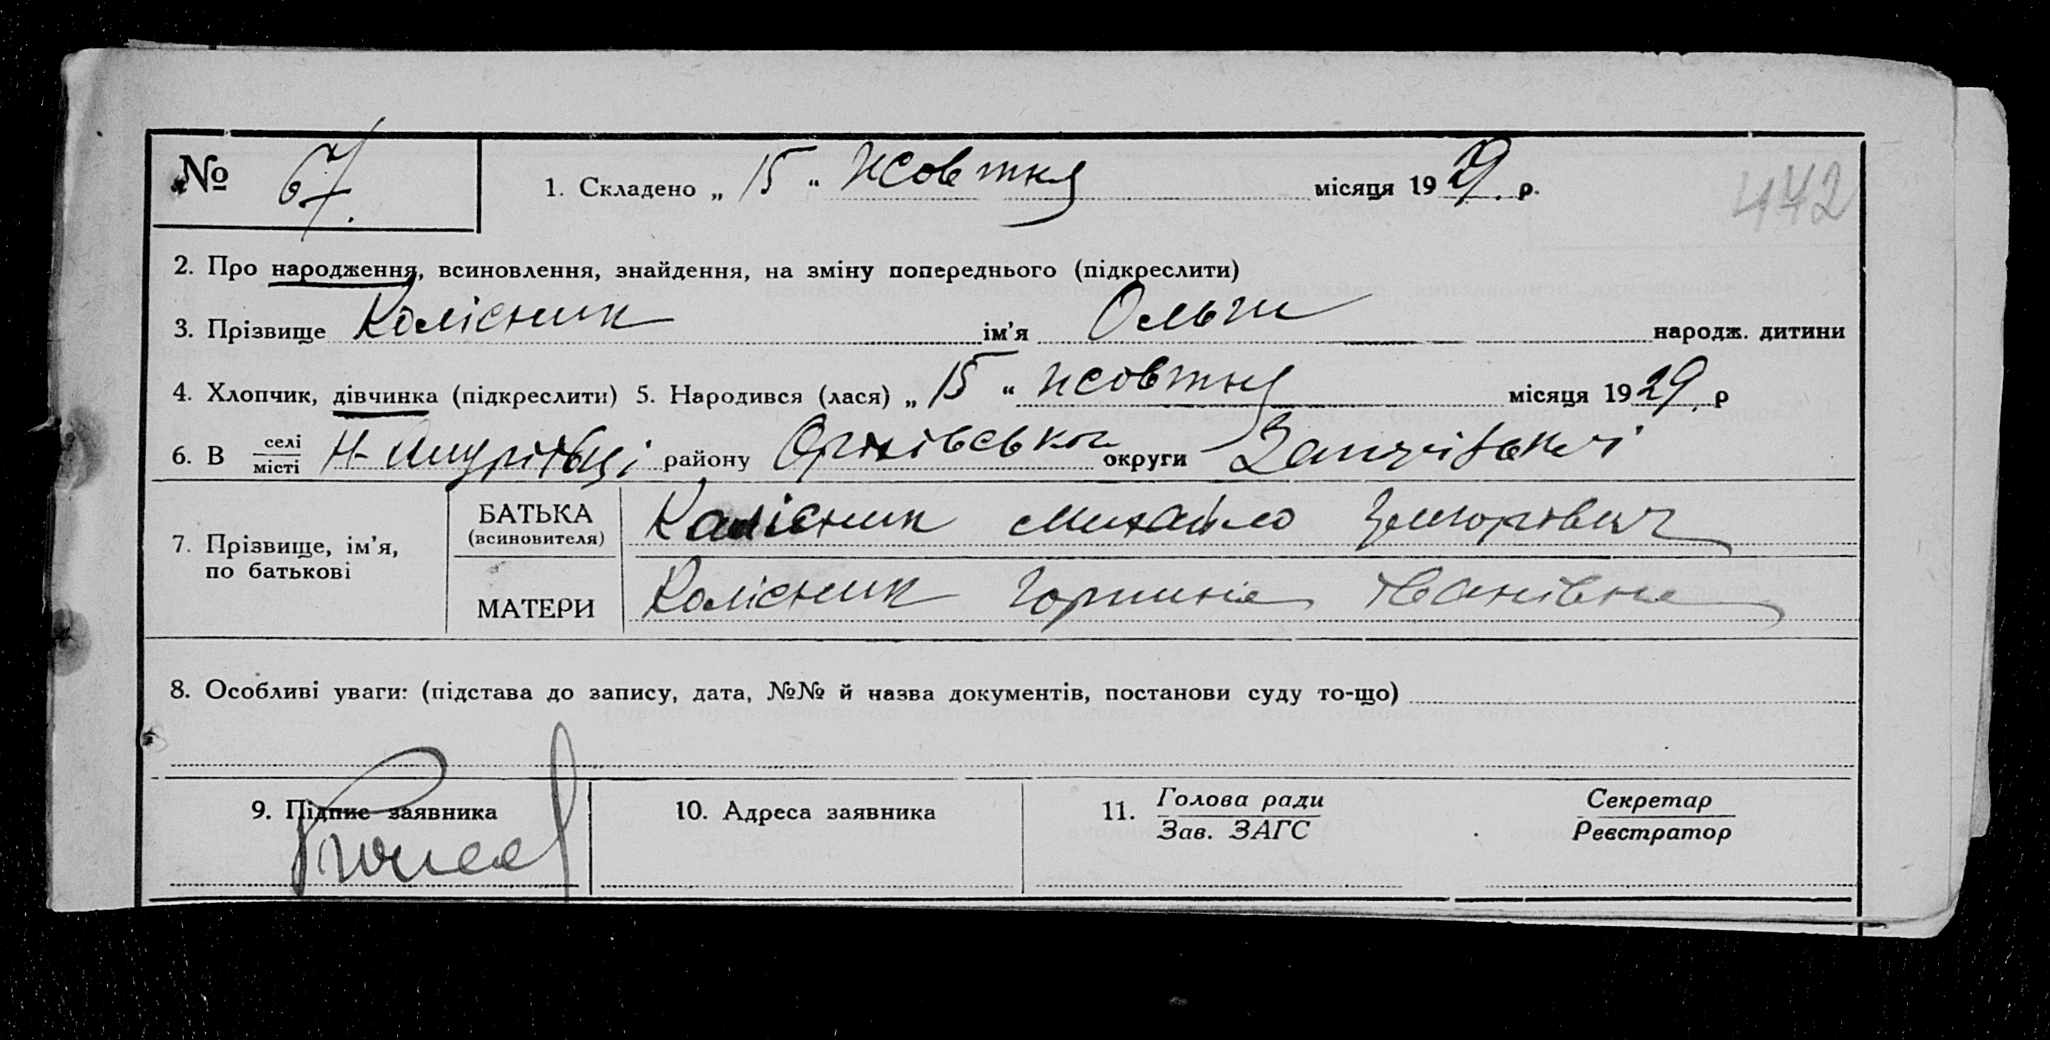 № 67.
1. Складено „ 15 “ Жовтня місяця 1929. р.
442
2. Про народження, всиновлення, знайдення, на зміну попереднього (підкреслити)
3. Прізвище Колісник ім’я Ольги народж. дитини
4. Хлопчик, дівчинка (підкреслити) 5. Народився (лася) „ 15 “ жовтня місяця 1929. р
6. В селі
місті району округи
7. Прізвище, ім’я,
по батькові
БАТЬКА
(всиновителя)
Колісник Михайло
МАТЕРИ
Колісник Горпина Іванівна
8. Особливі уваги: (підстава до запису, дата, №№ й назва документів, постанови суду то-що)
9. Підпис заявника
10. Адреса заявника
11. Голова ради
Зав. ЗАГС
Секретар
Реєстратор